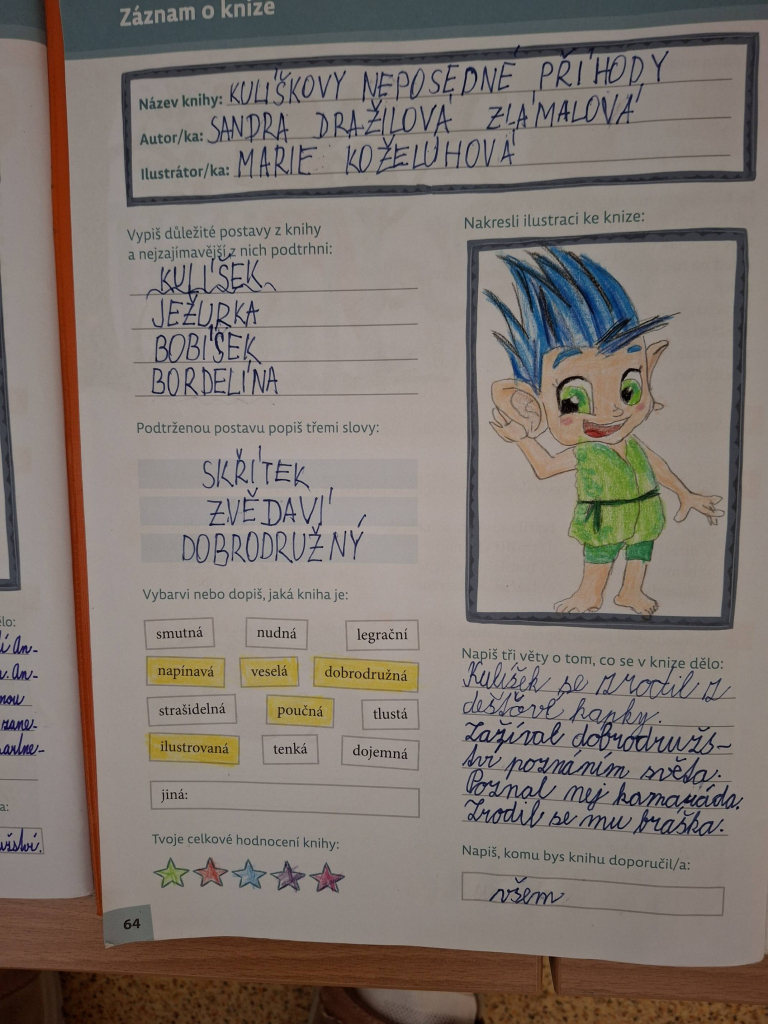 Záznam o knize
Název knihy: KULÍŠKOVY NEPOSEDNÉ PŘÍHODY
Autor/ka: SANDRA DRAŽILOVÁ ZLÁMALOVÁ
Ilustrátor/ka: MARIE KOŽELUHOVÁ
Vypiš důležité postavy z knihy
a nejzajímavější z nich podtrhni:
KULÍŠEK
JEŽURKA
BOBÍŠEK
BORDELÍNA
Podtrženou postavu popiš třemi slovy:
SKŘÍTEK
ZVĚDAVÍ
DOBRODRUŽNÝ
Vybarvi nebo dopiš, jaká kniha je:
smutná nudná legrační
napínavá veselá dobrodružná
strašidelná poučná tlustá
ilustrovaná tenká dojemná
jiná:
Tvoje celkové hodnocení knihy:
64
Nakresli ilustraci ke knize:
Napiš tři věty o tom, co se v knize dělo:
Kulíšek se zrodil z
dešťové kapky.
Zažíval dobrodružs-
tví poznáním světa.
Poznal nej kamaráda.
Zrodil se mu bráška.
Napiš, komu bys knihu doporučil/a:
všem